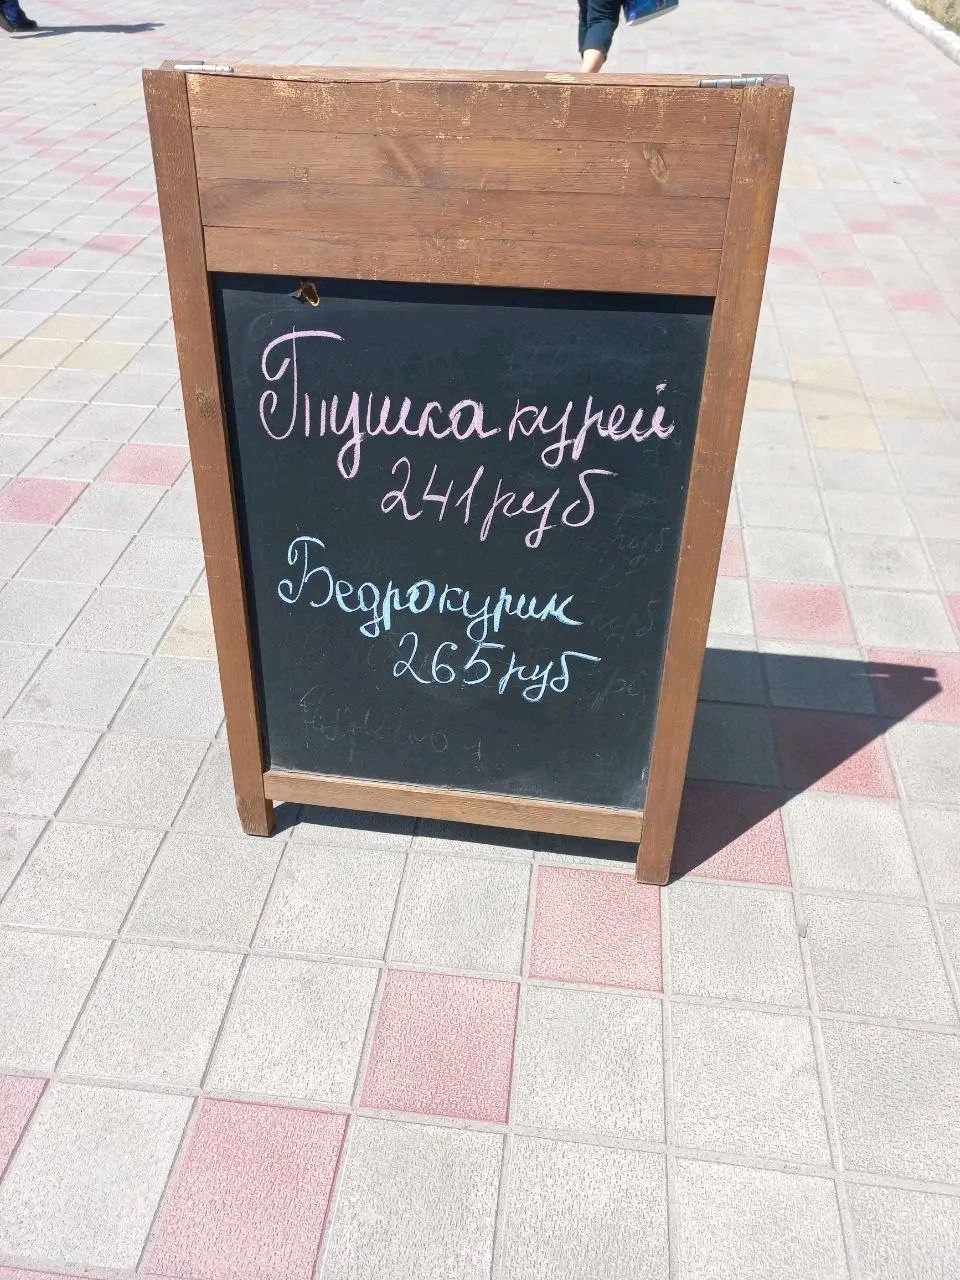 Тушка курей
241 руб
Бедро курин
265 руб